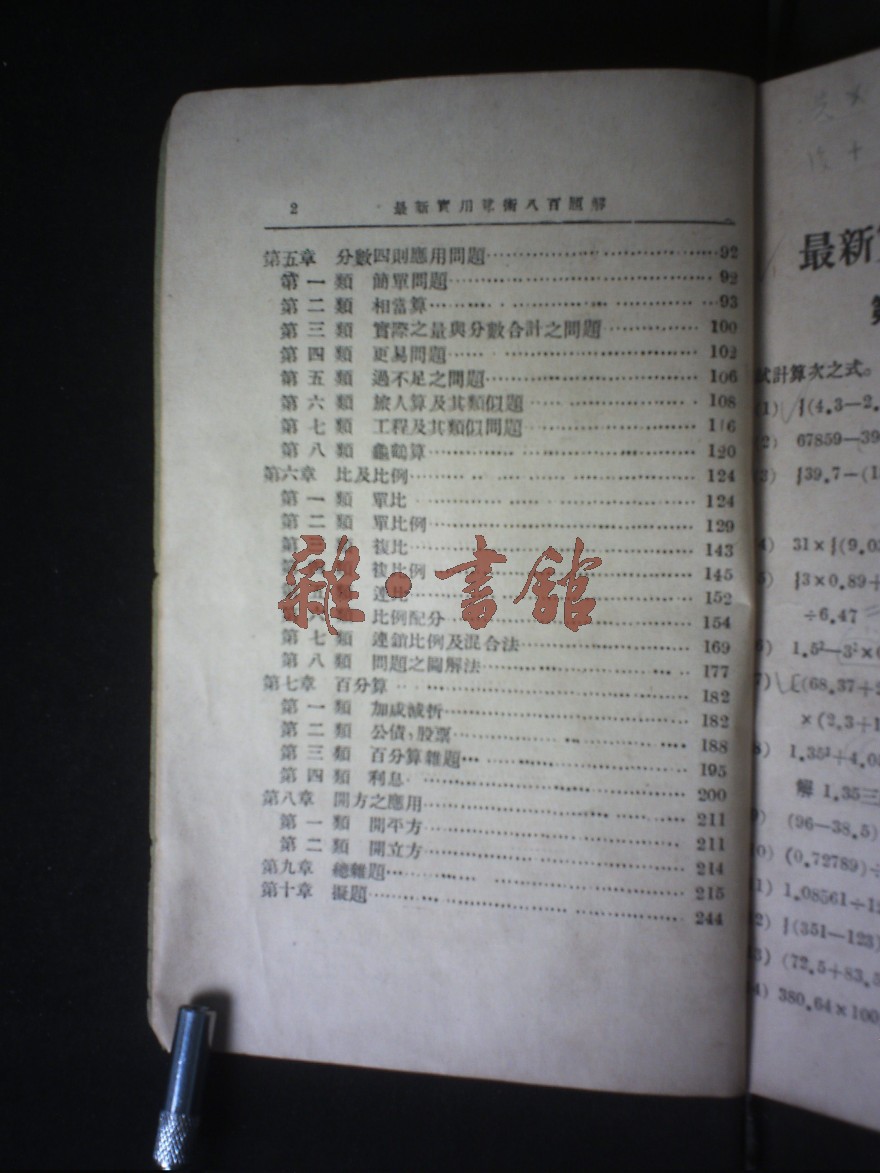 2 最新實用算術八百題解
第五章 分數四則應用問題 92
第一類 簡單問題 92
第二類 相當算 93
第三類 實際之量與分數合計之問題 100
第四類 更易問題 102
第五類 過不足之問題 106
第六類 旅人算及其類似問題 108
第七類 工程及其類似問題 116
第八類 龜鶴算 120
第六章 比及比例 124
第一類 單比 124
第二類 單比例 129
複比 143
複比例 145
連比 152
比例配分 154
第七類 連鎖比例及混合法 169
第八類 問題之圖解法 177
第七章 百分算 182
第一類 加成減折 182
第二類 公債,股票 188
第三類 百分算雜題 195
第四類 利息 200
第八章 開方之應用 211
第一類 開平方 211
第二類 開立方 214
第九章 總雜題 215
第十章 擬題 244
雜·書館
最新
試計算次之式。
(4.3—2.
67859—39
39.7—(1
31×
3×0.89+
÷6.47
1.5²—3²×
(68.37+2
×(2.3+1
1.35²+4.0
解 1.35
(96—38.5)
(0.72789)÷
1.08561÷12
(351—123)
(72.5+83.5
380.64×100